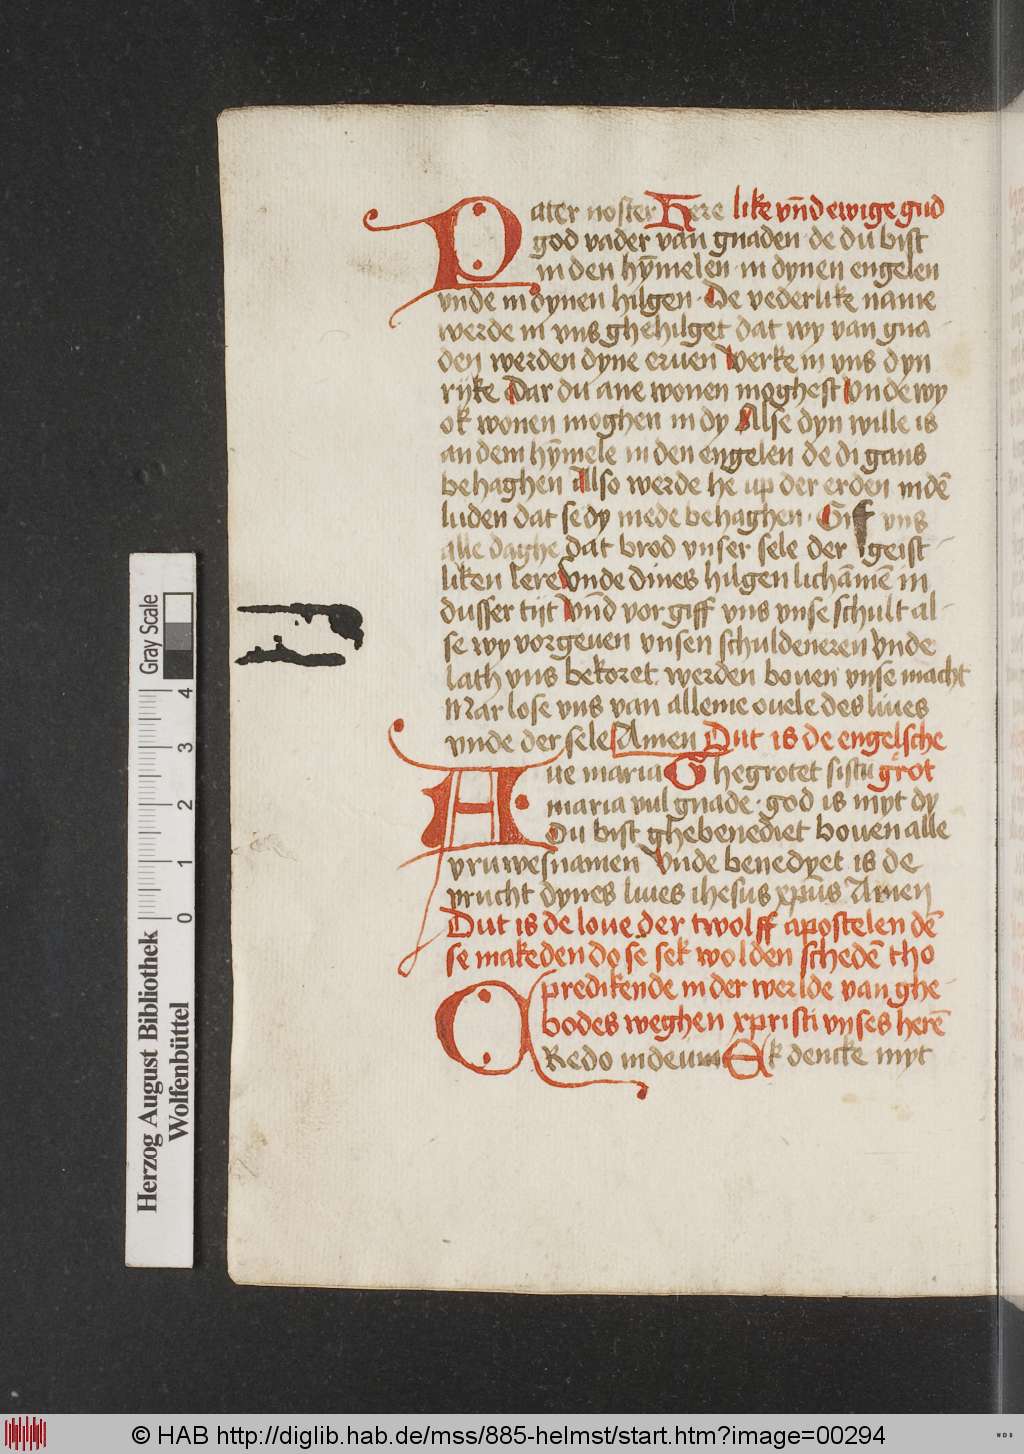 Pater noster Here like vn̄d ewige gud
god vader van gnaden · de du bist
in den hȳmelen · in dynen engelen
vnde in dynen hilgen · De vederlike name
werde in vns ghehilget dat wy van gna
den werden dyne eruen Werke in vns dyn
rijke Dar du ane wonen moghest Vnde wy
ok wonen moghen in dy Alse dyn wille is
an dem hȳmele in den engelen de di gans
behaghen Also werde he up der erden in dē
luden dat se dy mede behaghen · Gif vns
alle daghe dat brod vnser sele der geist-
liken lere Vnde dines hilgen lichāmē in
dusser tijt Vn̄d vor giff vns vnse schult al-
se wy vorgeuen vnsen schuldeneren Vnde
lath vns bekoret werden bouen vnse macht
Mar lose vns van alleme ouele des liues
vnde der sele Amen Dut is de engelsche
Aue maria Ghegrotet sistu grot
maria vul gnade · god is myt dy
Du bist ghebenediet bouen alle
vruwesnamen Vnde benedyet is de
vrucht dynes liues ihesus xpūs Amen
Dut is de loue der twolff apostelen dē
se makeden do se sek wolden schedē tho
predikende in der werlde van ghe-
bodes weghen xpristi vnses herē
CRedo in deum Ek dencke myt
Gray Scale
4
3
2
1
0
Herzog August Bibliothek
Wolfenbüttel
© HAB http://diglib.hab.de/mss/885-helmst/start.htm?image=00294